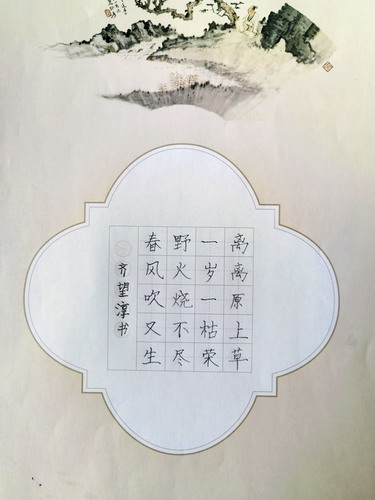 离离原上草
一岁一枯荣
野火烧不尽
春风吹又生
齐望淳书